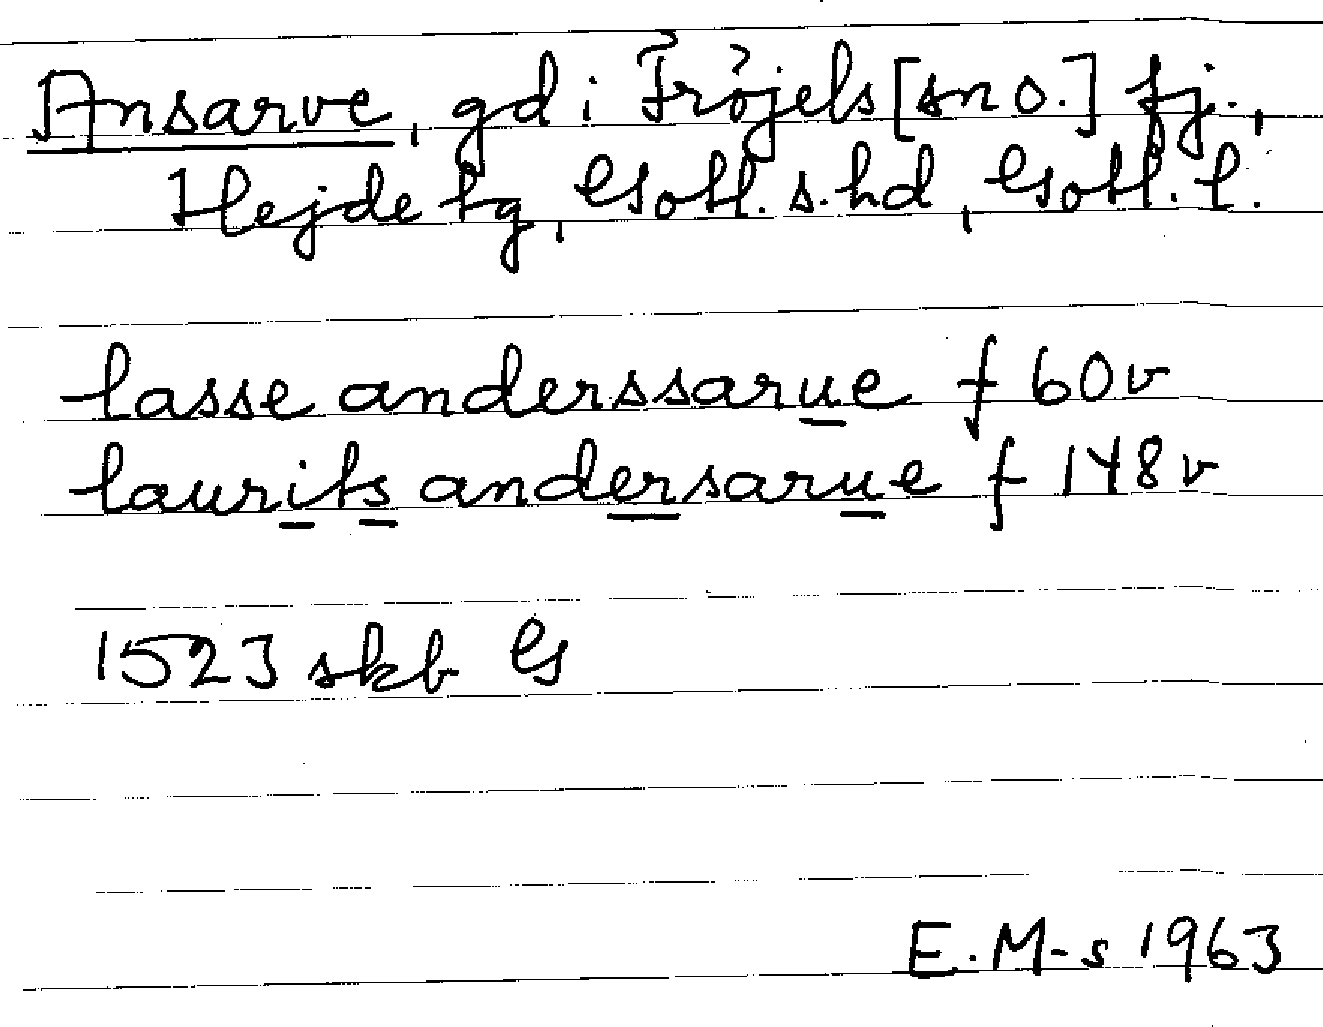 Ansarve, gd i Fröjels [sn o.] fj.,
Hejde tg, Gotl. s. hd, Gotl. l.
lasse anderssarue f 60v
laurits andersarue f 148v
1523 skb G
E. M-s 1963